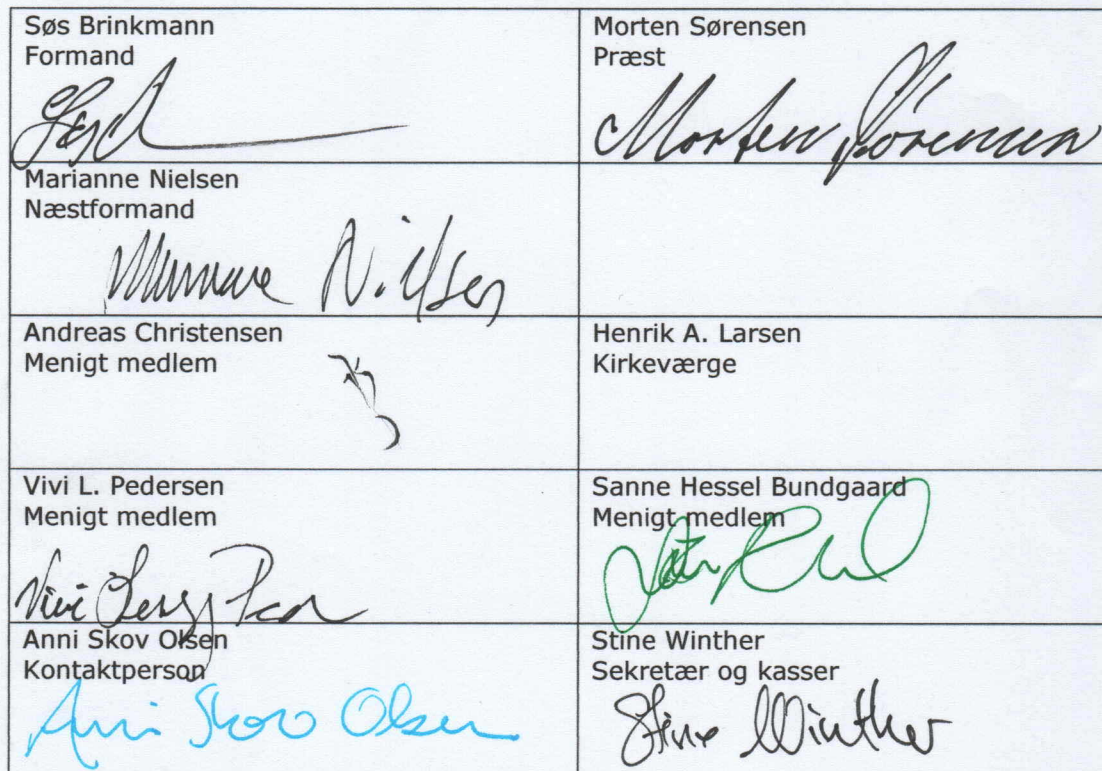 Søs Brinkmann
Formand
Morten Sørensen
Præst
Morten Sørensen
Marianne Nielsen
Næstformand
Marianne Nielsen
Andreas Christensen
Menigt medlem
Henrik A. Larsen
Kirkeværge
Vivi L. Pedersen
Menigt medlem
Vivi
Sanne Hessel Bundgaard
Menigt medlem
Anni Skov Olsen
Kontaktperson
Anni Skov Olsen
Stine Winther
Sekretær og kasser
Stine Winther